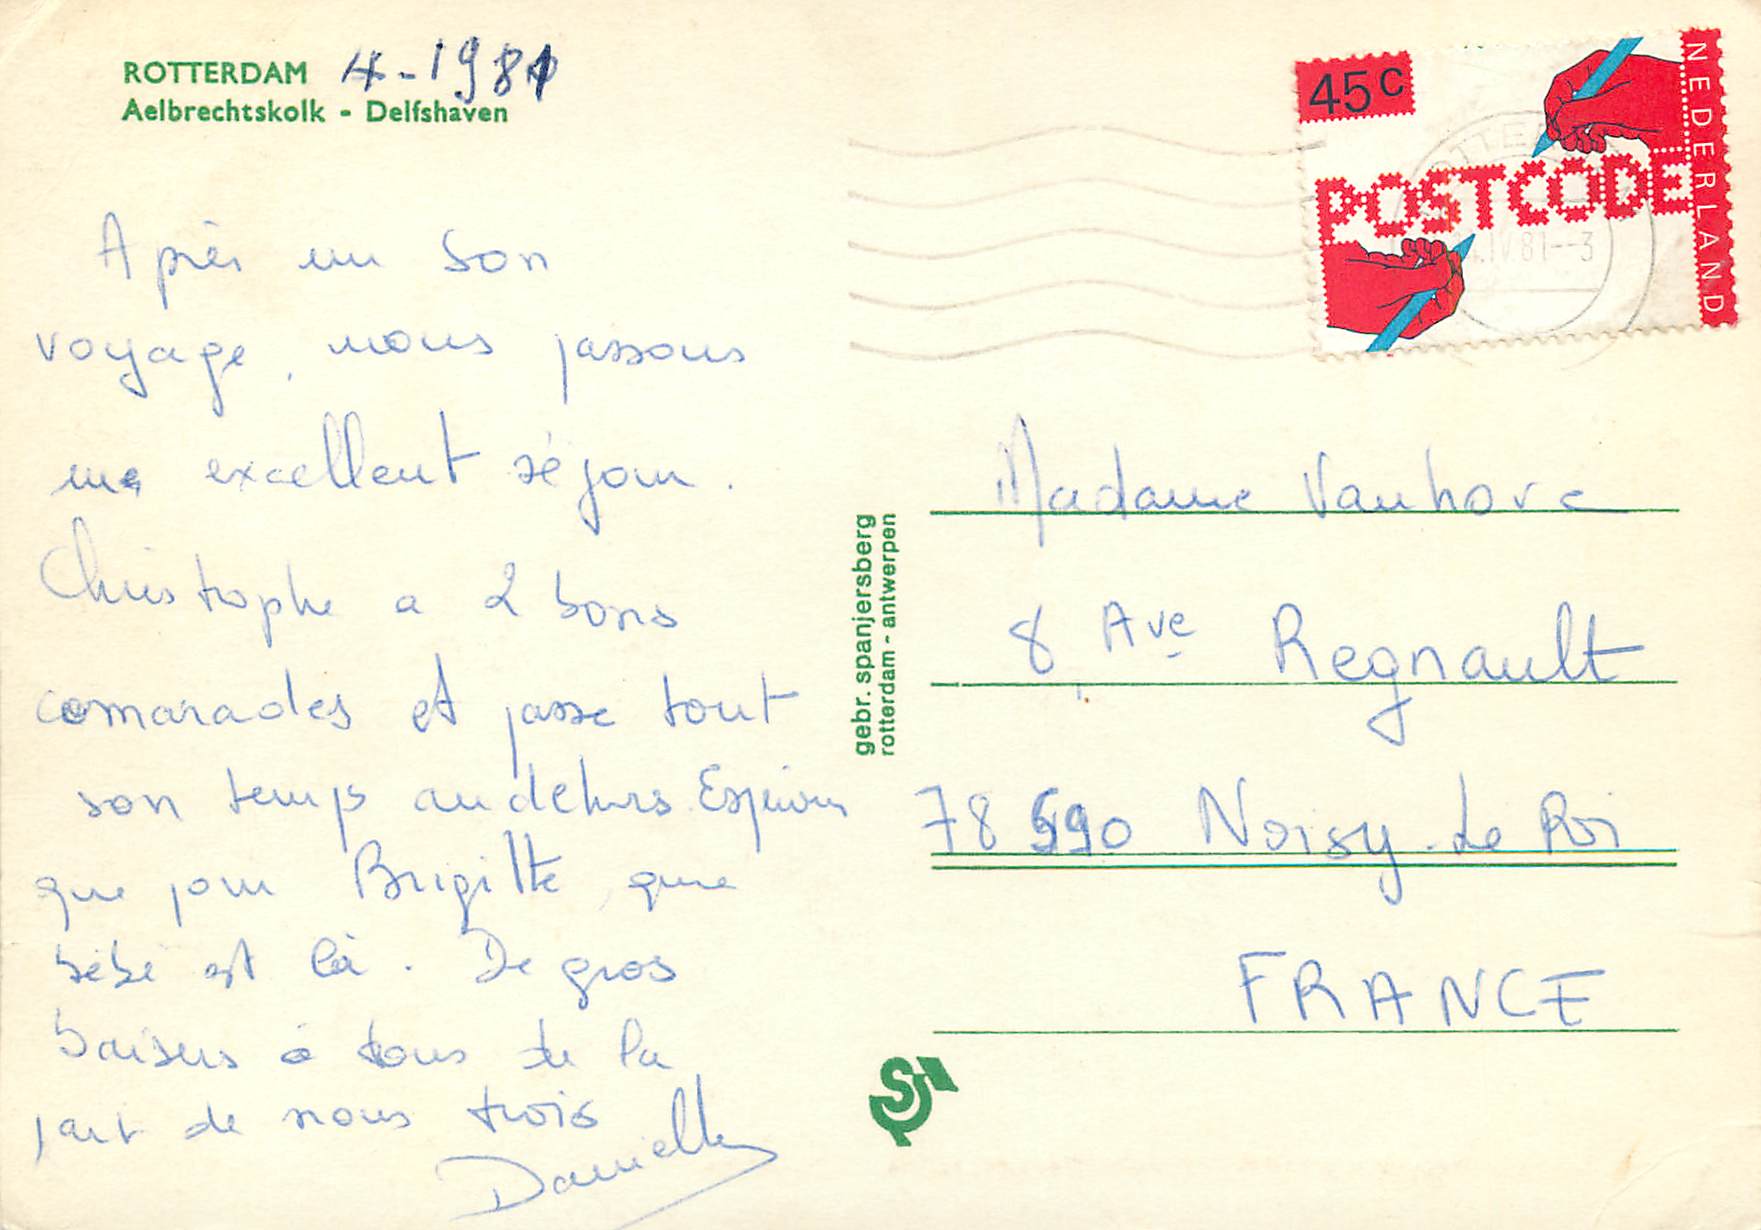 ROTTERDAM 4-1981
Aelbrechtskolk - Delfshaven
Après un bon
voyage, nous passons
une excellent séjour.
Christophe a 2 bons
camarades et passe tout
son temps au dehors. Espérons
que pour Brigitte, que
bébé est là. De gros
baisers à tous de la
part de nous trois
Danielle
gebr. spanjersberg
rotterdam - antwerpen
45c
POSTCODE
NEDERLAND
ROTTE
.IV.81--3
Madame Vanhove
8 Ave Regnault
78590 Noisy-Le Roi
FRANCE